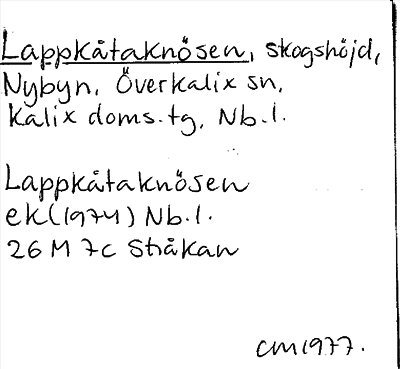 Lappkåtaknösen, skogshöjd,
Nybyn, Överkalix sn,
Kalix doms.tg, Nb.l.
Lappkåtaknösen
ek (1974) Nb.l.
26 M 7c Stråkan
CM1977.